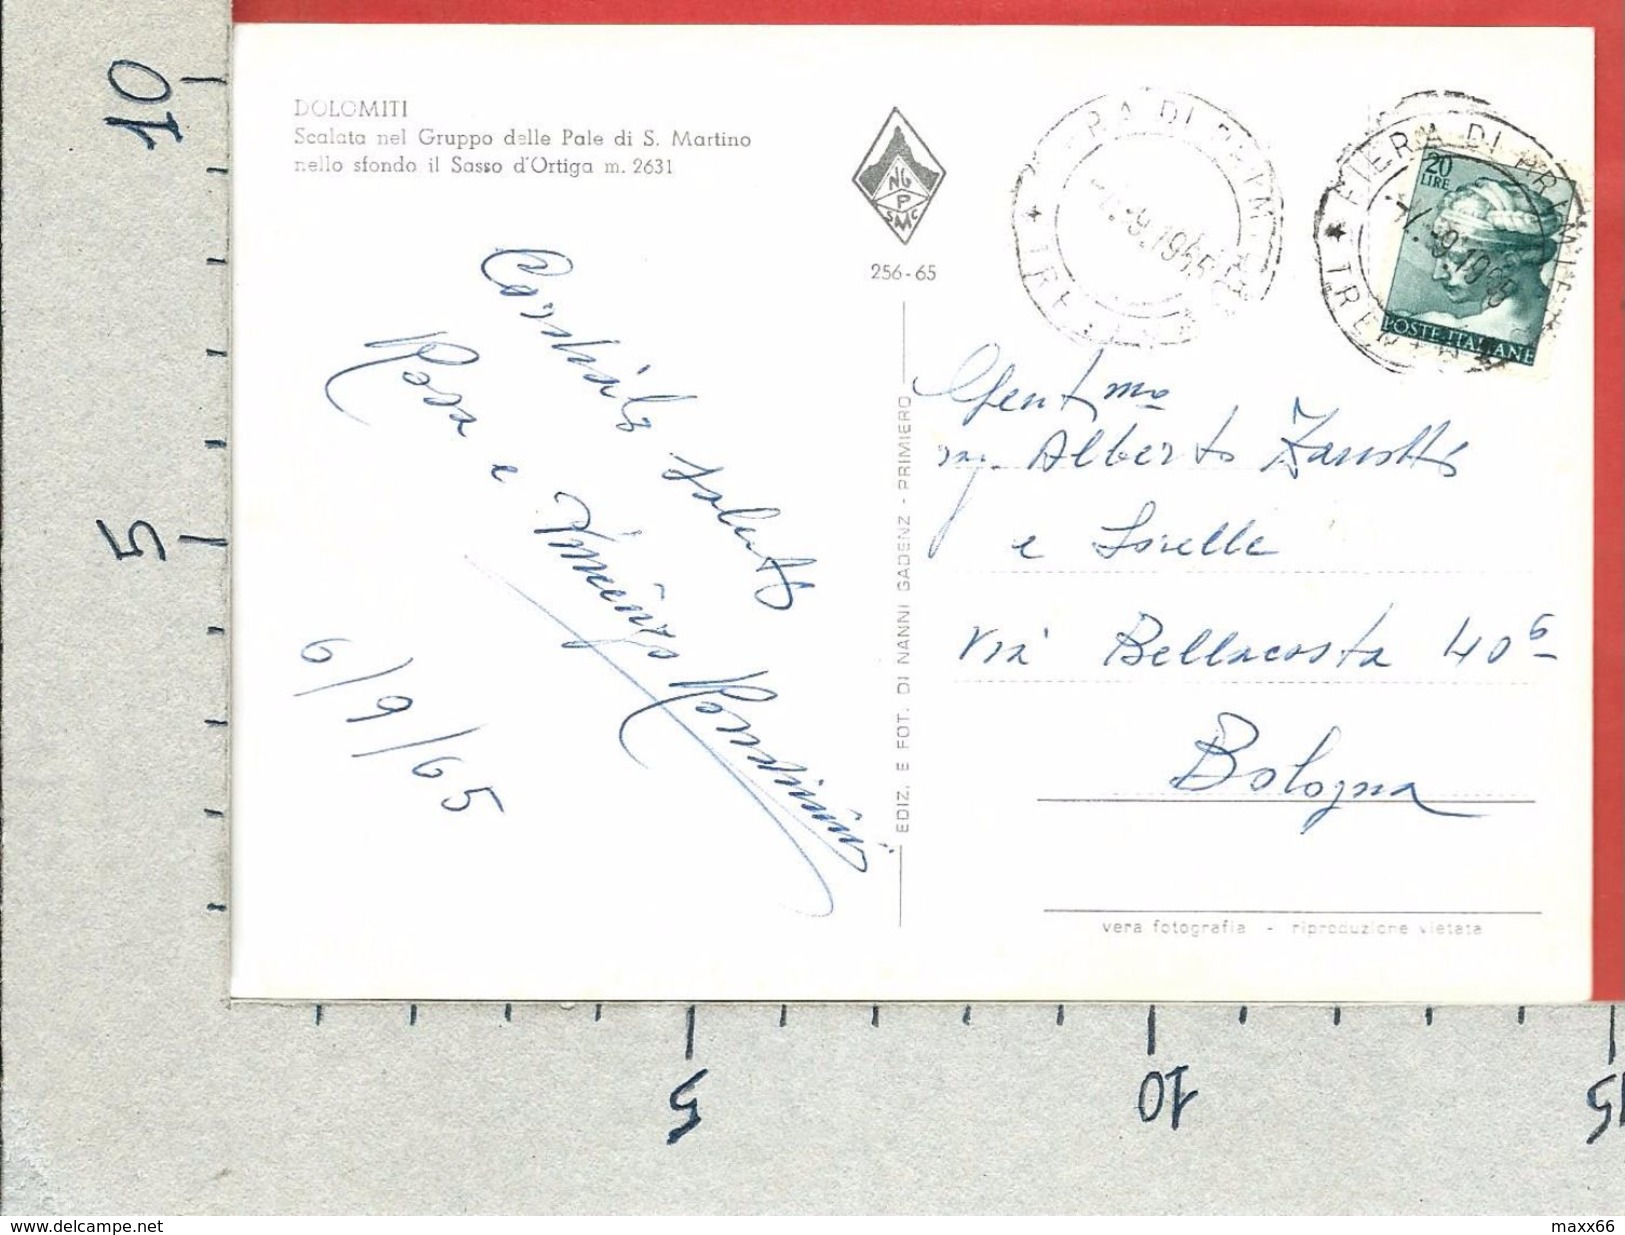 DOLOMITI
Scalata nel Gruppo delle Pale di S. Martino
nello sfondo il Sasso d'Ortiga m. 2631
NG
P
SMC
256-65
FIERA DI PRIMIERO
TRENTO
-9.1965
20
LIRE
POSTE ITALIANE
Cordiali saluti
Rosa e
6/9/65
EDIZ. E FOT. DI NANNI GADENZ - PRIMIERO
Gent.mo
Alberto Zanotti
e Sorelle
Via Bellacosta 40
Bologna
vera fotografia - riproduzione vietata
10
5
5
10
15
www.delcampe.net
maxx66